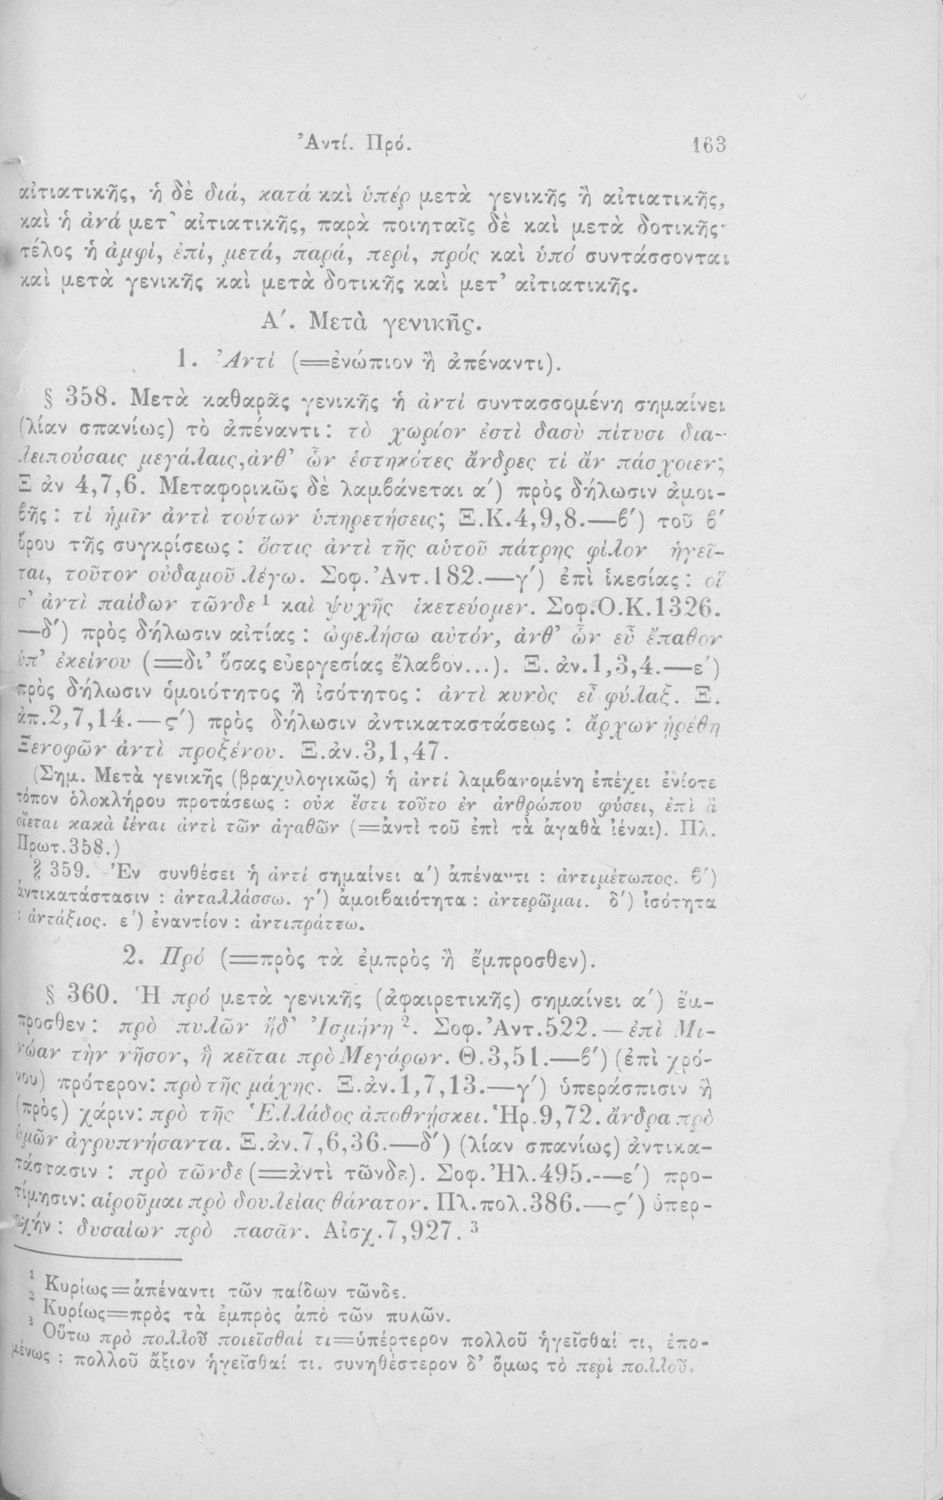 Ἀντί. Πρό. 163
αἰτιατικῆς, ἡ δὲ διά, κατά καὶ ὑπέρ μετὰ γενικῆς ἢ αἰτιατικῆς,
καὶ ἡ ἀνά μετ' αἰτιατικῆς, παρὰ ποιηταῖς δὲ καὶ μετὰ δοτικῆς·
τέλος ἡ ἀμφί, ἐπί, μετά, παρά, περί, πρός καὶ ὑπό συντάσσονται
καὶ μετὰ γενικῆς καὶ μετὰ δοτικῆς καὶ μετ' αἰτιατικῆς.
Α΄. Μετὰ γενικῆς.
1. Ἀντί (=ἐνώπιον ἢ ἀπέναντι).
§ 358. Μετὰ καθαρᾶς γενικῆς ἡ ἀντί συντασσομένη σημαίνει
(λίαν σπανίως) τὸ ἀπέναντι: τὸ χωρίον ἐστὶ δασὺ πίτυσι δια-
λειπούσαις μεγάλαις, ἀνθ' ὧν ἑστηκότες ἄνδρες τί ἂν πάσχοιεν;
Ξ ἀν 4,7,6. Μεταφορικῶς δὲ λαμβάνεται α΄) πρὸς δήλωσιν ἀμοι-
βῆς: τί ἡμῖν ἀντὶ τούτων ὑπηρετήσεις; Ξ.Κ.4,9,8.—β΄) τοῦ β΄
ὅρου τῆς συγκρίσεως: ὅστις ἀντὶ τῆς αὑτοῦ πάτρης φίλον ἡγεῖ-
ται, τοῦτον οὐδαμοῦ λέγω. Σοφ.Ἀντ.182.—γ΄) ἐπὶ ἱκεσίας: οἵ
σ' ἀντὶ παίδων τῶνδε¹ καὶ ψυχῆς ἱκετεύομεν. Σοφ.Ο.Κ.1326.
—δ΄) πρὸς δήλωσιν αἰτίας: ὠφελήσω αὐτόν, ἀνθ' ὧν εὖ ἔπαθον
ὑπ' ἐκείνου (=δι' ὅσας εὐεργεσίας ἔλαβον...). Ξ. ἀν.1,3,4.—ε΄)
πρὸς δήλωσιν ὁμοιότητος ἢ ἰσότητος: ἀντὶ κυνὸς εἶ φύλαξ. Ξ.
ἀπ.2,7,14.—ς΄) πρὸς δήλωσιν ἀντικαταστάσεως: ἄρχων ᾑρέθη
Ξενοφῶν ἀντὶ προξένου. Ξ.ἀν.3,1,47.
(Σημ. Μετὰ γενικῆς (βραχυλογικῶς) ἡ ἀντί λαμβανομένη ἐπέχει ἐνίοτε
τόπον ὁλοκλήρου προτάσεως: οὐκ ἔστι τοῦτο ἐν ἀνθρώπου φύσει, ἐπὶ ἃ
οἴεται κακὰ ἰέναι ἀντὶ τῶν ἀγαθῶν (=ἀντὶ τοῦ ἐπὶ τὰ ἀγαθὰ ἰέναι). Πλ.
Πρωτ.358.)
§ 359. Ἐν συνθέσει ἡ ἀντί σημαίνει α΄) ἀπέναντι: ἀντιμέτωπος. β΄)
ἀντικατάστασιν: ἀνταλλάσσω. γ΄) ἀμοιβαιότητα: ἀντερῶμαι. δ΄) ἰσότητα
: ἀντάξιος. ε΄) ἐναντίον: ἀντιπράττω.
2. Πρό (=πρὸς τὰ ἐμπρὸς ἢ ἔμπροσθεν).
§ 360. Ἡ πρό μετὰ γενικῆς (ἀφαιρετικῆς) σημαίνει α΄) ἔμ-
προσθεν: πρὸ πυλῶν ἥδ' Ἰσμήνη². Σοφ.Ἀντ.522.—ἐπὶ Μι-
νώαν τὴν νῆσον, ἣ κεῖται πρὸ Μεγάρων. Θ.3,51.—β΄) (ἐπὶ χρό-
νου) πρότερον: πρὸ τῆς μάχης. Ξ.ἀν.1,7,13.—γ΄) ὑπεράσπισιν ἢ
(πρὸς) χάριν: πρὸ τῆς Ἑλλάδος ἀποθνῄσκει. Ἡρ.9,72. ἄνδρα πρὸ
ὑμῶν ἀγρυπνήσαντα. Ξ.ἀν.7,6,36.—δ΄) (λίαν σπανίως) ἀντικα-
τάστασιν: πρὸ τῶνδε (=ἀντὶ τῶνδε). Σοφ.Ἠλ.495.—ε΄) προ-
τίμησιν: αἱροῦμαι πρὸ δουλείας θάνατον. Πλ.πολ.386.—ς΄) ὑπερ-
οχήν: δυσαίων πρὸ πασᾶν. Αἰσχ.7,927.³
¹ Κυρίως=ἀπέναντι τῶν παίδων τῶνδε.
² Κυρίως=πρὸς τὰ ἐμπρὸς ἀπὸ τῶν πυλῶν.
³ Οὕτω πρὸ πολλοῦ ποιεῖσθαί τι=ὑπέρτερον πολλοῦ ἡγεῖσθαί τι, ἑπο-
μένως: πολλοῦ ἄξιον ἡγεῖσθαί τι. συνηθέστερον δ' ὅμως τὸ περὶ πολλοῦ.